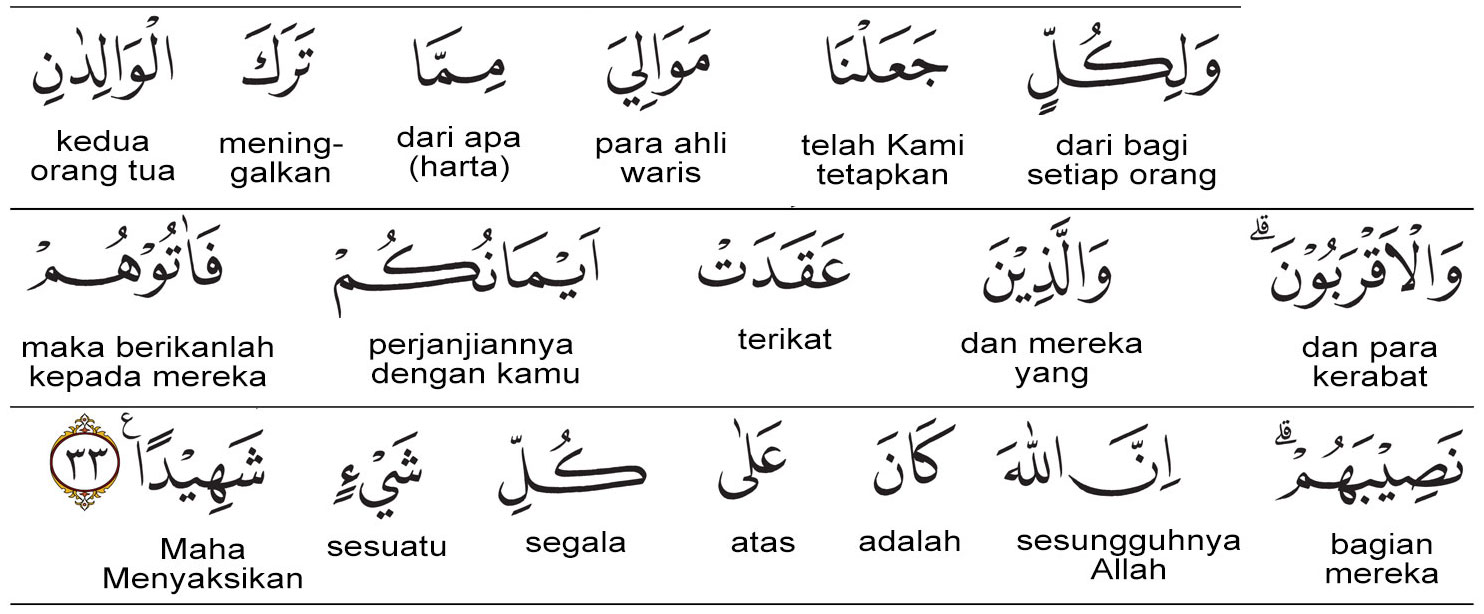 وَلِكُلٍّ جَعَلْنَا مَوَالِيَ مِمَّا تَرَكَ الْوَالِدٰنِ
dari bagi setiap orang telah Kami tetapkan para ahli waris dari apa (harta) mening-galkan kedua orang tua
وَالْاَقْرَبُوْنَ ۗ وَالَّذِيْنَ عَقَدَتْ اَيْمَانُكُمْ فَاٰتُوْهُمْ
dan para kerabat dan mereka yang terikat perjanjiannya dengan kamu maka berikanlah kepada mereka
نَصِيْبَهُمْ ۗ اِنَّ اللّٰهَ كَانَ عَلٰى كُلِّ شَيْءٍ شَهِيْدًا ࣖ ٣٣
bagian mereka sesungguhnya Allah adalah atas segala sesuatu Maha Menyaksikan